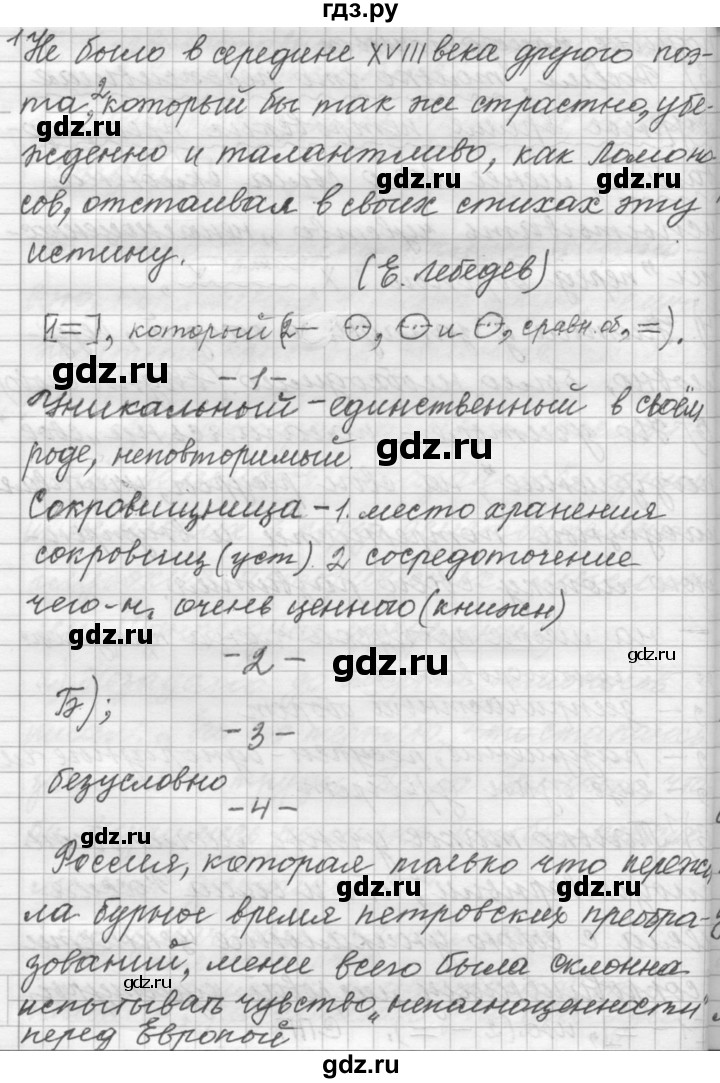 гдз.ру
¹Не было в середине XVIII века другого поэ-
та,² который бы так же страстно, убе-
gdz.ru
жденно и талантливо, как Ломоно-
gdz.ru gdz.ru
сов, отстаивал в своих стихах эту
истину.
(Е. Лебедев)
[1=], который (2— ⊖, ⊖ и ⊖, сравн. об, =).
gdz.ru
-1-
Уникальный – единственный в своём
роде, неповторимый.
gdz.ru
Сокровищница – 1. место хранения
сокровищ (уст). 2 сосредоточение
чего-н. очень ценного (книжн)
gdz.ru
-2-
gdz.ru gdz.ru
Б);
-3-
безусловно
-4-
gdz.ru
Россия, которая только что пережи-
gdz.ru gdz.ru
ла бурное время петровских преобра-
зований, менее всего была склонна
gdz.ru
испытывать чувство „неполноценности"
перед Европой
gdz.ru